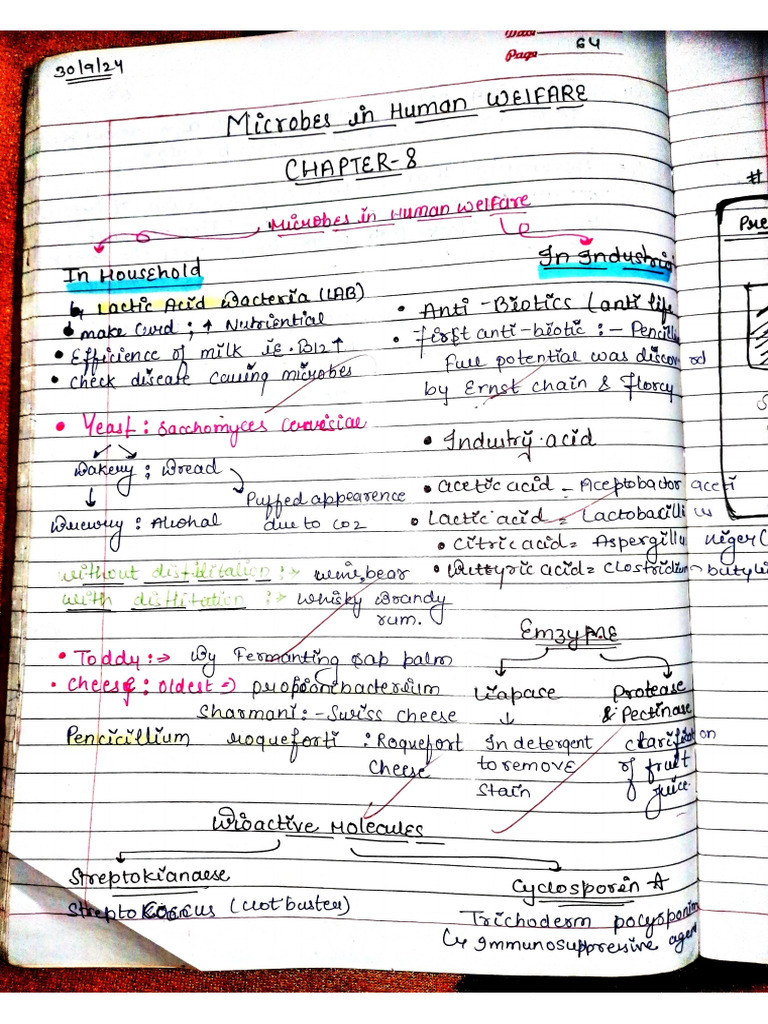 Date
Page 64
30/9/24
Microbes in Human WELFARE
CHAPTER-8
Microbes in Human Welfare
In Household
↳ Lactic Acid Bacteria (LAB)
• make Curd ; ↑ Nutriential
• Efficience of milk ie. B12 ↑
• check disease causing microbes
• Yeast : Sacchomyces cerevisiae
Bakery ; Bread
Puffed appearence
due to CO2
Brewery : Alcohal
without distilitation :→ wine, bear
with distitation :→ whisky Brandy
rum.
• Toddy :→ By Fermanting sap palm
• Cheese : oldest ⇒ propionibacterium
Sharmani : - Swiss cheese
Pencicillium roqueforti : Roquefort
Cheese
In Industri
• Anti - Biotics (anti life
• First anti-biotic : - Pencill
full potential was discov rd
by Ernst chain & Florcy
• Industry acid
• acetic acid - Aceptobactor aceti
• Lactic acid = Lactobacillus
• Citric acid = Aspergillu niger (
• Buttyric acid = Clostridium - butyli
Emzyme
Liapase
↓
In detergent
to remove
stain
Protease
& Pectinase
clarification
of fruit
juice.
Bioactive Molecules
Streptokianaese
Streptococcus (clot buster)
Cyclosporin A
Trichoderm polysporim
↳ Immunosuppresive agen
#
Pre